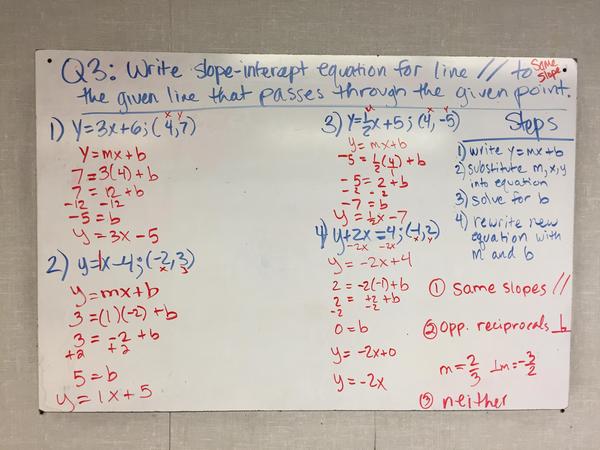 Q3: Write slope-intercept equation for line // to
Same
slope
the given line that passes through the given point.
1) y=3x+6; (4,7)
x y
y=mx+b
7=3(4)+b
7=12+b
-12 -12
-5=b
y=3x-5
2) y=1x-4; (-2,3)
x 3
y=mx+b
3=(1)(-2)+b
3=-2+b
+2 +2
5=b
y=1x+5
3) y=½x+5; (4,-5)
m x y
y=mx+b
-5=½(4)+b
1
-5=2+b
-2 -2
-7=b
y=½x-7
4) y+2x=4; (-1,2)
-2x -2x x y
y=-2x+4
2=-2(-1)+b
2=+2+b
-2 -2
0=b
y=-2x+0
y=-2x
Steps
1) write y=mx+b
2) substitute m,x,y
into equation
3) solve for b
4) rewrite new
equation with
m and b
① same slopes //
② opp. reciprocals ⊥
m=2/3 ⊥m=-3/2
③ neither